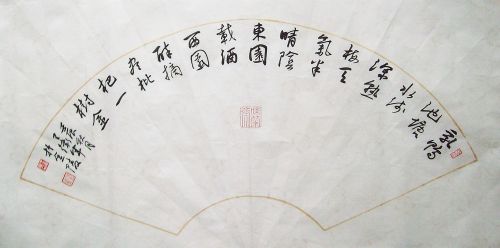 乳鴨
池塘
水浅
深熟
梅天
氣半
晴陰
東園
載酒
西園
醉摘
尽枇
杷一
樹金